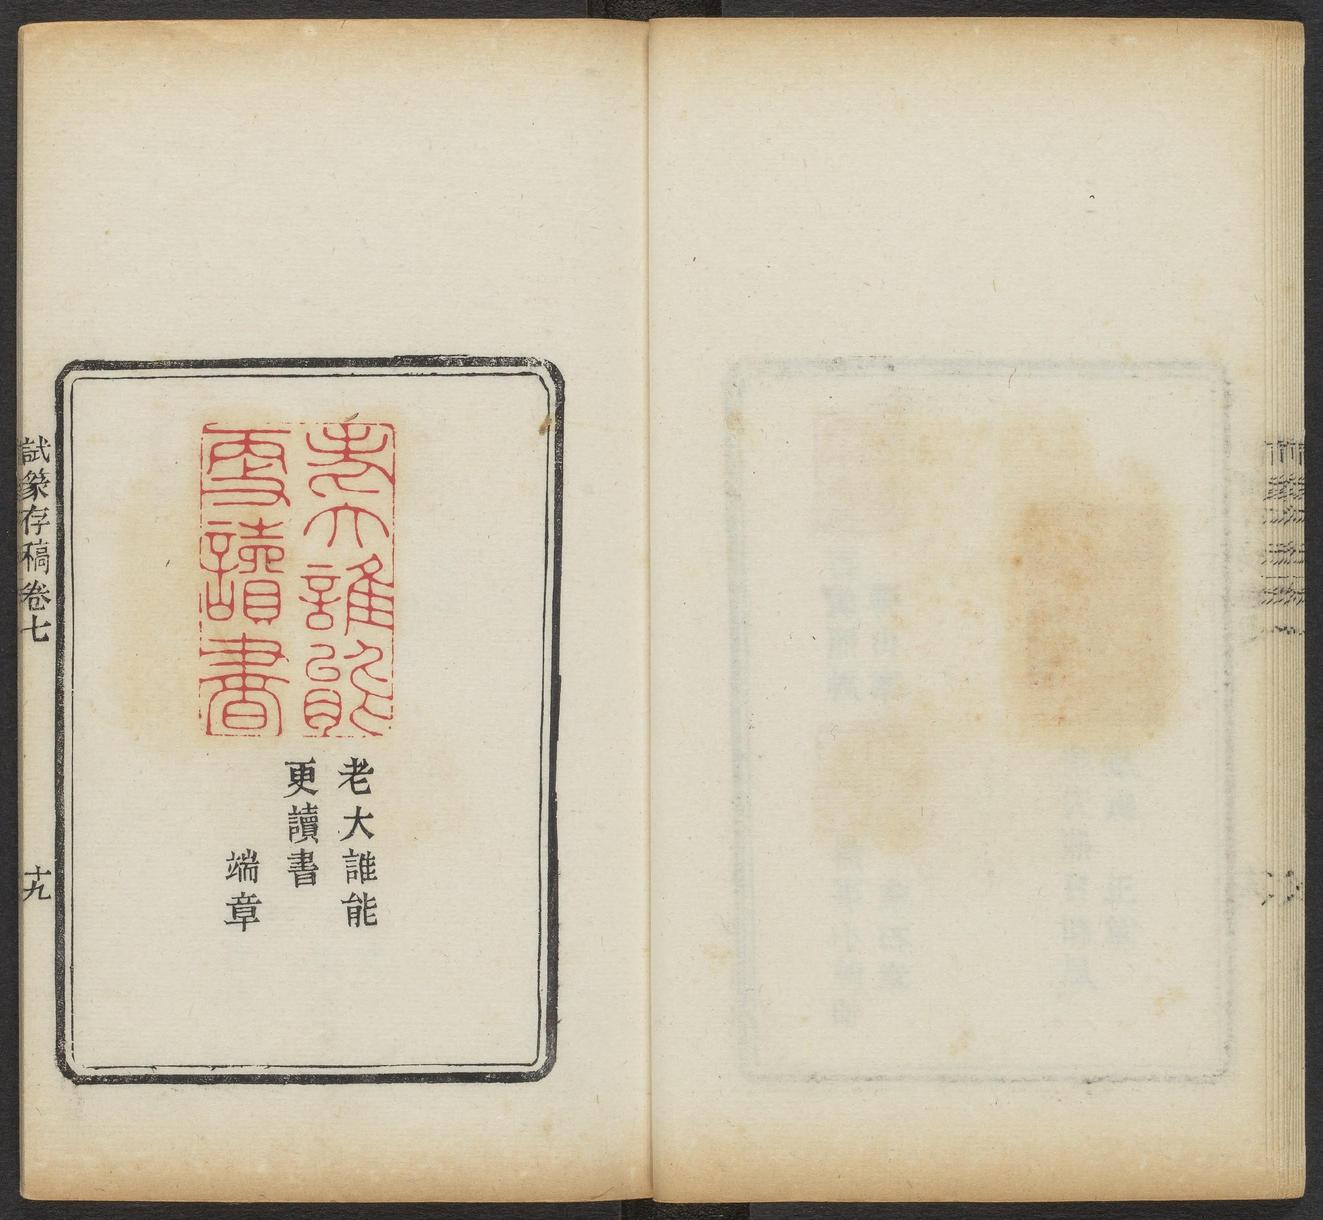 老大誰能
更讀書
老大誰能
更讀書
端章
試篆存稿卷七
十九